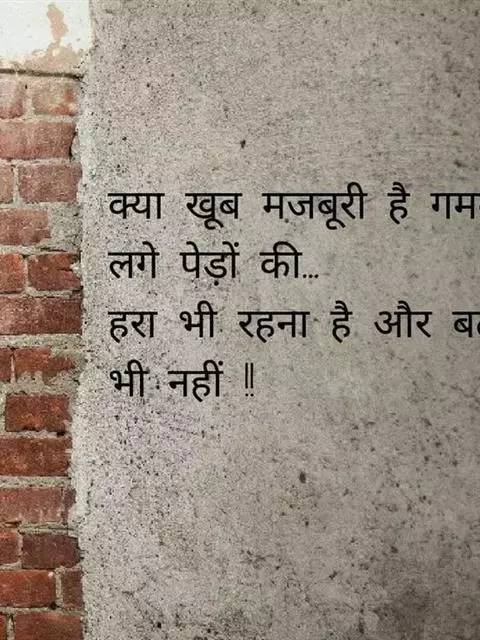 क्या खूब मजबूरी है गम
लगे पेड़ों की...
हरा भी रहना है और ब
भी नहीं !!